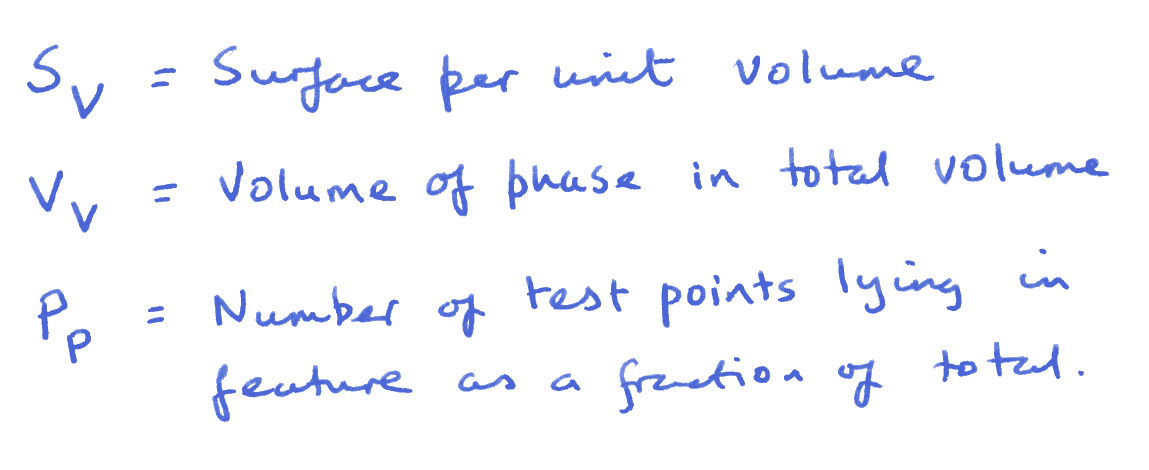 S_V = Surface per unit volume
V_V = Volume of phase in total volume
P_P = Number of test points lying in
feature as a fraction of total.